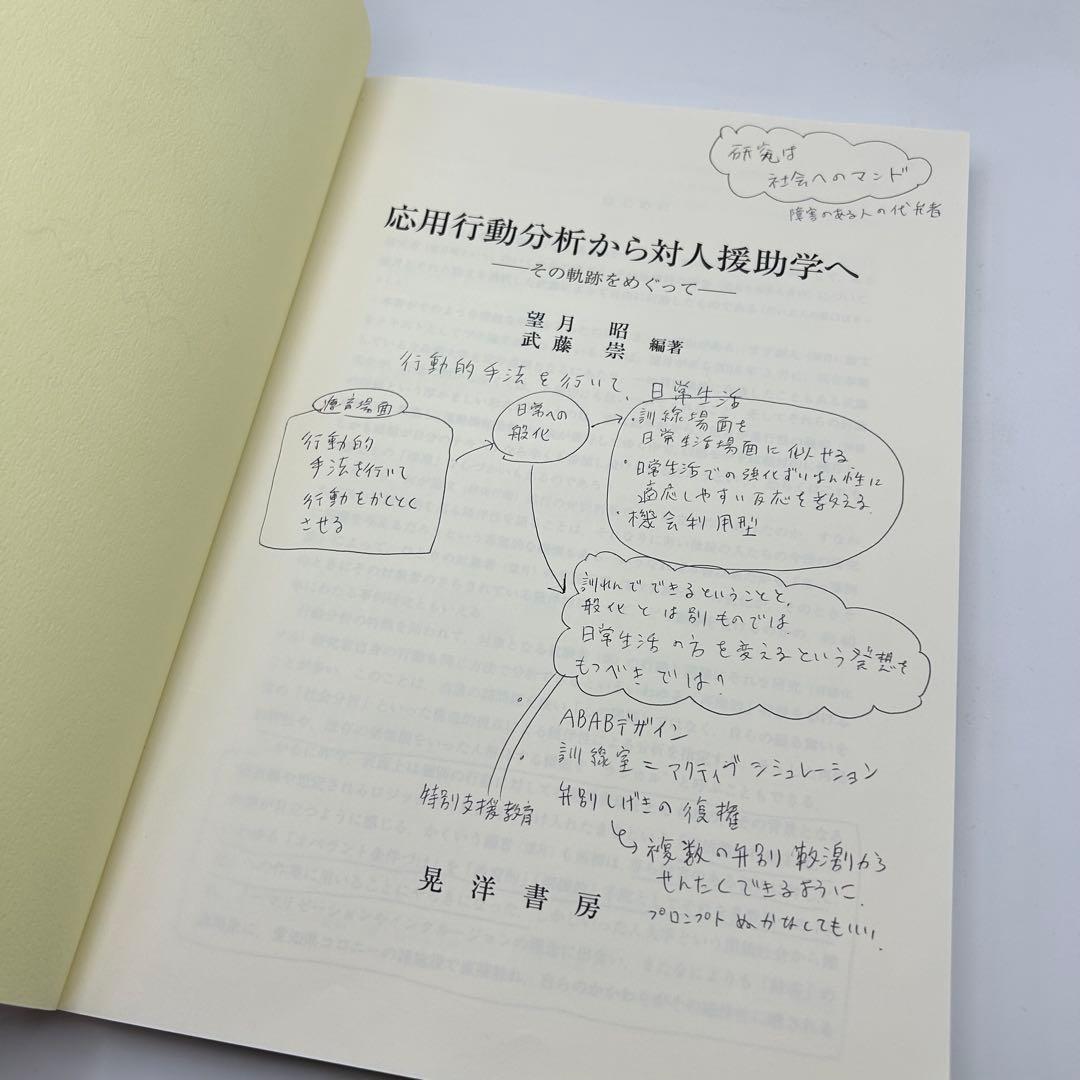 研究は
社会へのマンド
障害のある人の代弁者
応用行動分析から対人援助学へ
——その軌跡をめぐって——
望月 昭
武藤 崇 編著
行動的手法を行いて、日常生活
場面
行動的
手法を行いて
行動をかくとく
させる
日常への
般化
・訓練場面を
日常生活場面に似せる
・日常生活での強化ずいはん性に
適応しやすい反応を教える.
・機会利用型
訓れんでできるということと、
般化とは別ものでは.
日常生活の方を変えるという発想を
もつべきでは?
・ABABデザイン
・訓練室=アクティブシミュレーション
特別支援教育
弁別しげきの復権
↳複数の弁別刺激から
せんたくできるように.
プロンプトぬかなくてもいい.
晃洋書房